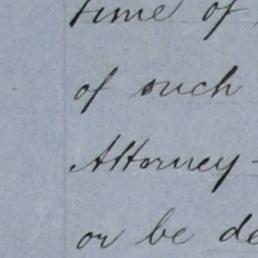 time of
of such
Attorney -
or be de